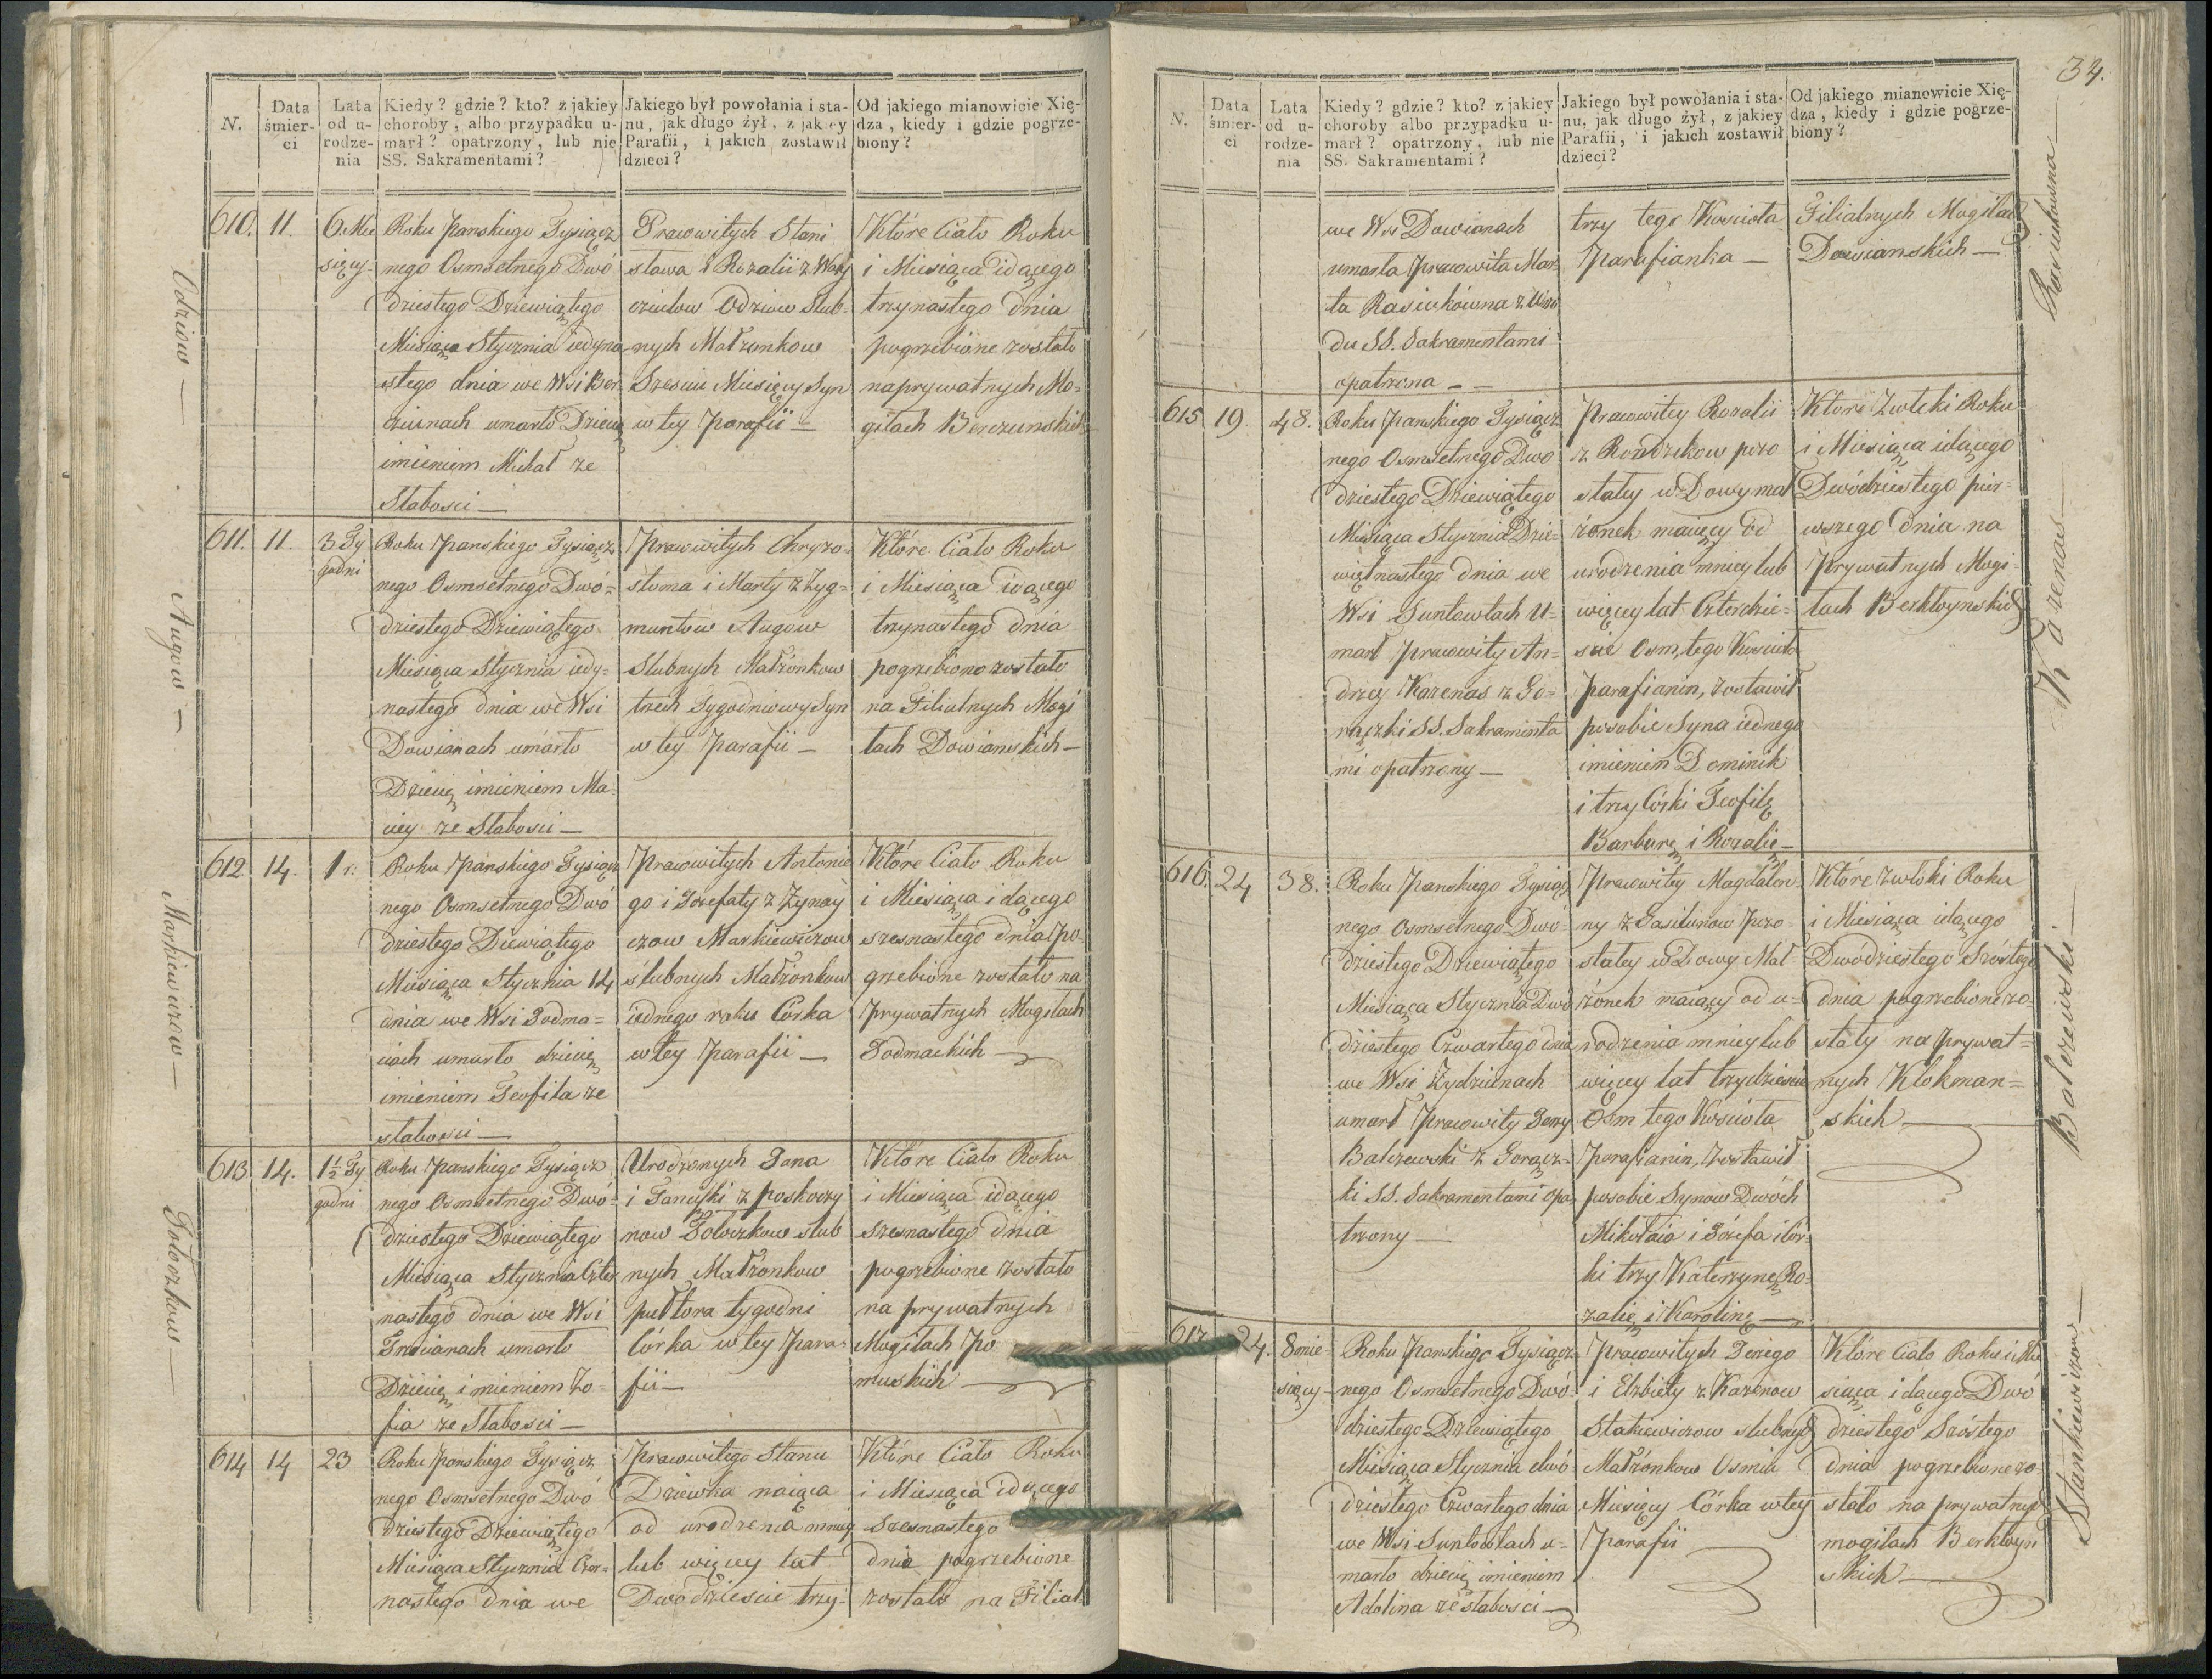 N.
Data śmierci
Lata od urodzenia
Kiedy? gdzie? kto? z jakiey
choroby, albo przypadku u-
marł? opatrzony, lub nie
SS. Sakramentami?
Jakiego był powołania i sta-
nu, jak długo żył, z jakiey
Parafii, i jakich zostawił
dzieci?
Od jakiego mianowicie Xię-
dza, kiedy i gdzie pogrze-
biony?
Odziow —
610. 11. 6 Mie
sięcy
Roku Panskiego Tysiącz
nego Osmsetnego Dwó
dziestego Dziewiątego
Miesiąca Stycznia iedyna
stego dnia we Wsi Ber
cziunach umarło Dziecię
imieniem Michał ze
Słabosci —
Pracowitych Stani
sława i Rozalii z
Odziow Slub-
nych Małżonkow
Szesciu Miesięcy Syn
w tey Parafii —
Które Ciało Roku
i Miesiąca idącego
trzynastego dnia
pogrzebione zostało
na prywatnych Mo-
giłach Berczunskich
Augow —
611. 11. 3 Ty
godni
Roku Panskiego Tysiącz
nego Osmsetnego Dwó-
dziestego Dziewiątego
Miesiąca Stycznia iedy-
nastego dnia we Wsi
Dowianach umarło
Dziecię imieniem Ma-
ciey ze Słabosci —
Pracowitych Chryzo-
stoma i Marty z Zyg-
muntow Augow
Slubnych Małżonkow
trzech Tygodniowy Syn
w tey Parafii —
Które Ciało Roku
i Miesiąca idącego
trzynastego dnia
pogrzebione zostało
na Filialnych Mogi
łach Dowianskich —
Markiewiczow —
612. 14. 1 r.
Roku Panskiego Tysiącz
nego Osmsetnego Dwó
dziestego Dziewiątego
Miesiąca Stycznia 14
dnia we Wsi Jodma-
ciach umarło dziecię
imieniem Teofila ze
słabosci —
Pracowitych Antonie
go i Jozefaty z Zynay
czow Markiewiczow
ślubnych Małżonkow
iednego roku Corka
w tey Parafii —
Które Ciało Roku
i Miesiąca idącego
szesnastego dnia po-
grzebione zostało na
Prywatnych Mogiłach
Jodmackich —
Tołoczkow —
613. 14. 1½ Ty
godni
Roku Panskiego Tysiącz
nego Osmsetnego Dwó-
dziestego Dziewiątego
Miesiąca Stycznia Czter
nastego dnia we Wsi
umarło
Dziecię imieniem Zo-
fia ze Słabosci —
Urodzonych Jana
i z Poskoczy
now Tołoczkow slub
nych Małżonkow
pułtora tygodni
Córka w tey Para-
fii —
Które Ciało Roku
i Miesiąca idącego
szesnastego dnia
pogrzebione zostało
na prywatnych
Mogiłach Po
muskich —
614 14 23
Roku Panskiego Tysiącz
nego Osmsetnego Dwó
dziestego Dziewiątego
Miesiąca Stycznia Czter-
nastego dnia we
Pracowitego Stanu
Dziewka maiąca
od urodzenia mniey
lub więcey lat
Dwódziescie trzy-
Które Ciało Roku
i Miesiąca idącego
Szesnastego
dnia pogrzebione
zostało na Filial
34.
N.
Data śmierci
Lata od urodzenia
Kiedy? gdzie? kto? z jakiey
choroby albo przypadku u-
marł? opatrzony, lub nie
SS. Sakramentami?
Jakiego był powołania i sta-
nu, jak długo żył, z jakiey
Parafii, i jakich zostawił
dzieci?
Od jakiego mianowicie Xię-
dza, kiedy i gdzie pogrze-
biony?
Rasiukowna
we Wsi Dowianach
umarła Pracowita Mar
ta Rasiukówna z Wrzo
du SS. Sakramentami
opatrzona —
trzy tego Kościoła
Parafianka —
Filialnych Mogiłach
Dowianskich —
Kazenas —
615 19. 48.
Roku Panskiego Tysiącz
nego Osmsetnego Dwo
dziestego Dziewiątego
Miesiąca Stycznia Dzie-
więtnastego dnia we
Wsi Suntowtach U-
marł Pracowity An-
drzey Kazenas z Go-
rączki SS. Sakramenta
mi opatrzony —
Pracowitey Rozalii
z Rondzikow pozo
stałey w Dowy mał
żonek maiący Od
urodzenia mniey lub
więcey lat Czterdzie-
scie Osm, tego Kościoła
Parafianin, zostawił
posobie Syna iednego
imieniem Dominik
i trzy Córki Teofilę
Barbarę i Rozalię —
Które Zwłoki Roku
i Miesiąca idącego
Dwódziestego pier-
wszego dnia na
Prywatnych Mogi-
łach Berktynskich
Balczewski —
616. 24 38.
Roku Panskiego Tysiącz
nego Osmsetnego Dwó-
dziestego Dziewiątego
Miesiąca Stycznia Dwó
dziestego Czwartego dnia
we Wsi Zydziunach
umarł Pracowity Jerzy
Balczewski z Gorącz-
ki SS. Sakramentami opa
trzony —
Pracowitey Magdalen-
ny z Gasiunow Pozo-
stałey w Dowy Mał-
żonek maiący od u-
rodzenia mniey lub
więcey lat trzydziescie
Osm tego Kościoła
Parafianin, Zostawił
posobie Synow Dwóch
Mikołaia i Józefa i Cór-
ki trzy Katerzynę Ro-
zalię i Karolinę —
Które zwłoki Roku
i Miesiąca idącego
Dwódziestego Szóstego
dnia pogrzebione zo-
stały na prywat-
nych Klokman-
skich —
Stankiewiczow —
617. 24. 8 mie-
sięcy
Roku Panskiego Tysiącz-
nego Osmsetnego Dwó-
dziestego Dziewiątego
Miesiąca Stycznia dwó-
dziestego Czwartego dnia
we Wsi Suntowtach u-
marło dziecię imieniem
Adolina ze słabosci —
Pracowitych Jerzego
i Elzbiety z Kazenow
Stakiewiczow slubnych
Małżonkow Osmiu
Miesięcy Córka w tey
Parafii
Które Ciało Roku i Mie
siąca idącego Dwó
dziestego Szóstego
dnia pogrzebione zo-
stało na prywatnych
mogiłach Berktyn
skich —